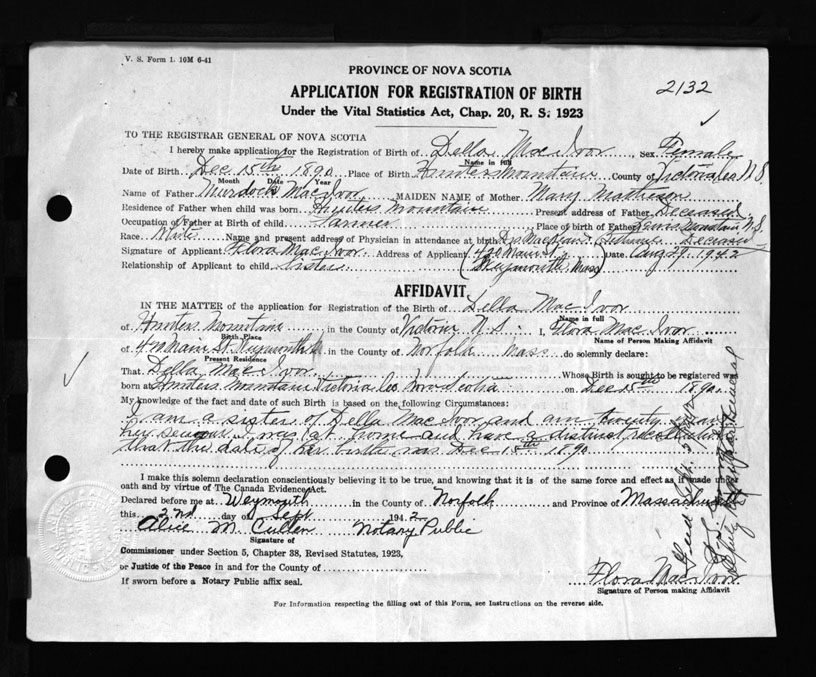 V. S. Form 1. 10M 6-41
PROVINCE OF NOVA SCOTIA
2132
APPLICATION FOR REGISTRATION OF BIRTH
Under the Vital Statistics Act, Chap. 20, R. S. 1923
TO THE REGISTRAR GENERAL OF NOVA SCOTIA
I hereby make application for the Registration of Birth of Della MacIvor, Sex Female
Name in full
Date of Birth Dec 15th 1890 Place of Birth Hunters Mountain County of Victoria N.S.
Month Date Year
Name of Father Murdock MacIvor MAIDEN NAME of Mother Mary Matheson
Residence of Father when child was born Hunters Mountain Present address of Father Deceased
Occupation of Father at Birth of child Farmer Place of birth of Father Hunters Mountain N.S.
Race White Name and present address of Physician in attendance at birth Deceased
Signature of Applicant Flora MacIvor Address of Applicant 420 Main St Date Aug 29, 1942
Relationship of Applicant to child Sister (Weymouth, Mass)
AFFIDAVIT
IN THE MATTER of the application for Registration of the Birth of Della MacIvor
Name in full
of Hunters Mountain in the County of Victoria N.S. I, Flora MacIvor
Birth Place Name of Person Making Affidavit
of Main St. Weymouth in the County of Norfolk Mass do solemnly declare:
Present Residence
That Della MacIvor Whose Birth is sought to be registered was
born at Hunters Mountain Victoria Co. Nova Scotia on Dec 15th 1890
My knowledge of the fact and date of such Birth is based on the following Circumstances:
I am a sister of Della MacIvor and am twenty
her senior. I was at home and have a distinct recollection
that the date of her birth was Dec 15th 1890
I make this solemn declaration conscientiously believing it to be true, and knowing that it is of the same force and effect as if made under
oath and by virtue of The Canada Evidence Act.
Declared before me at Weymouth in the County of Norfolk and Province of Massachusetts
this 2nd day of Sept 1942
Alice M Cullen Notary Public
Signature of
Commissioner under Section 5, Chapter 38, Revised Statutes, 1923,
or Justice of the Peace in and for the County of
If sworn before a Notary Public affix seal.
Flora MacIvor
Signature of Person making Affidavit
For Information respecting the filling out of this Form, see Instructions on the reverse side.
Deputy Registrar General